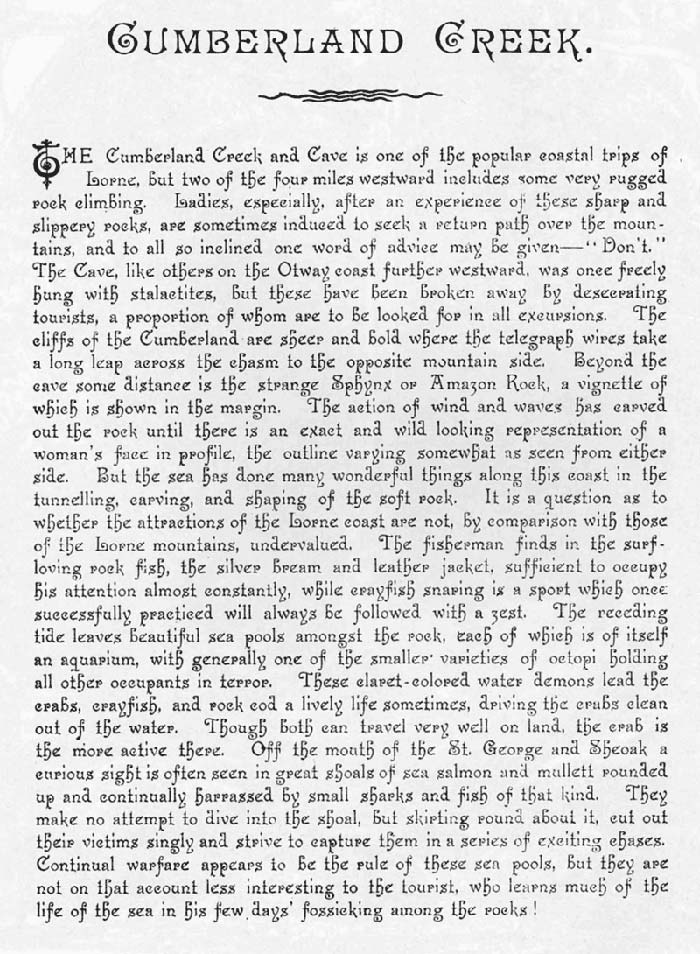 CUMBERLAND CREEK.
THE Cumberland Creek and Cave is one of the popular coastal trips of
Lorne, but two of the four miles westward includes some very rugged
rock climbing. Ladies, especially, after an experience of these sharp and
slippery rocks, are sometimes induced to seek a return path over the moun-
tains, and to all so inclined one word of advice may be given—"Don't."
The Cave, like others on the Otway coast further westward, was once freely
hung with stalactites, but these have been broken away by desecrating
tourists, a proportion of whom are to be looked for in all excursions. The
cliffs of the Cumberland are sheer and bold where the telegraph wires take
a long leap across the chasm to the opposite mountain side. Beyond the
cave some distance is the strange Sphynx or Amazon Rock, a vignette of
which is shown in the margin. The action of wind and waves has carved
out the rock until there is an exact and wild looking representation of a
woman's face in profile, the outline varying somewhat as seen from either
side. But the sea has done many wonderful things along this coast in the
tunnelling, carving, and shaping of the soft rock. It is a question as to
whether the attractions of the Lorne coast are not, by comparison with those
of the Lorne mountains, undervalued. The fisherman finds in the surf-
loving rock fish, the silver bream and leather jacket, sufficient to occupy
his attention almost constantly, while crayfish snaring is a sport which once
successfully practiced will always be followed with a zest. The receding
tide leaves beautiful sea pools amongst the rock, each of which is of itself
an aquarium, with generally one of the smaller varieties of octopi holding
all other occupants in terror. These claret-colored water demons lead the
crabs, crayfish, and rock cod a lively life sometimes, driving the crabs clean
out of the water. Though both can travel very well on land, the crab is
the more active there. Off the mouth of the St. George and Sheoak a
curious sight is often seen in great shoals of sea salmon and mullett rounded
up and continually harrassed by small sharks and fish of that kind. They
make no attempt to dive into the shoal, but skirting round about it, cut out
their victims singly and strive to capture them in a series of exciting chases.
Continual warfare appears to be the rule of these sea pools, but they are
not on that account less interesting to the tourist, who learns much of the
life of the sea in his few days' fossicking among the rocks!